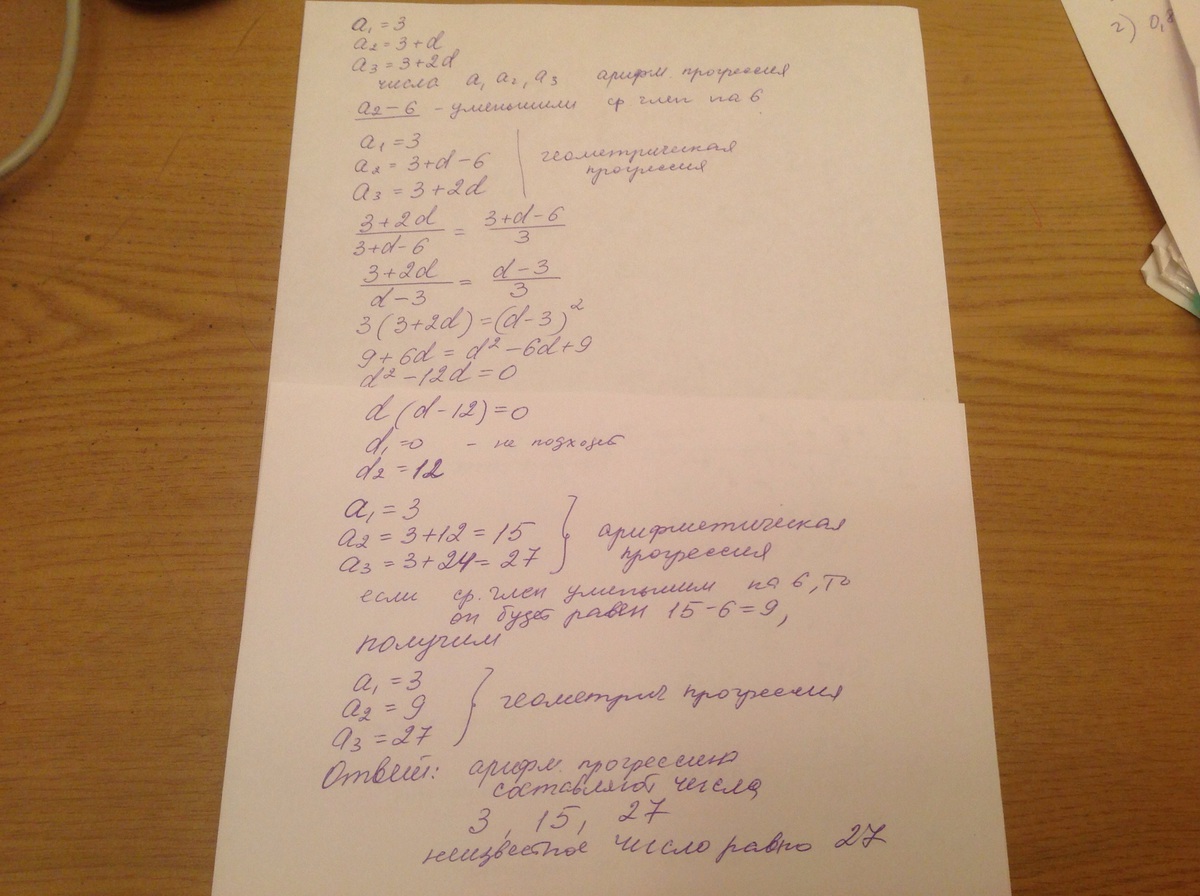 a₁ = 3
a₂ = 3+d
a₃ = 3+2d
числа a₁ a₂, a₃ арифм. прогрессия
a₂ - 6 - уменьшили ср. член на 6
a₁ = 3
a₂ = 3+d-6
a₃ = 3+2d
геометрическая
прогрессия
(3+2d)/(3+d-6) = (3+d-6)/3
(3+2d)/(d-3) = (d-3)/3
3(3+2d) = (d-3)²
9+6d = d²-6d+9
d²-12d = 0
d(d-12) = 0
d₁ = 0 - не подходит
d₂ = 12
a₁ = 3
a₂ = 3+12 = 15
a₃ = 3+24 = 27
арифметическая
прогрессия
если ср. член уменьшим на 6, то
он будет равен 15-6=9,
получим
a₁ = 3
a₂ = 9
a₃ = 27
геометрич прогрессия
Ответ: арифм. прогрессию
составляют числа
3, 15, 27
неизвестное число равно 27
2) 0,8